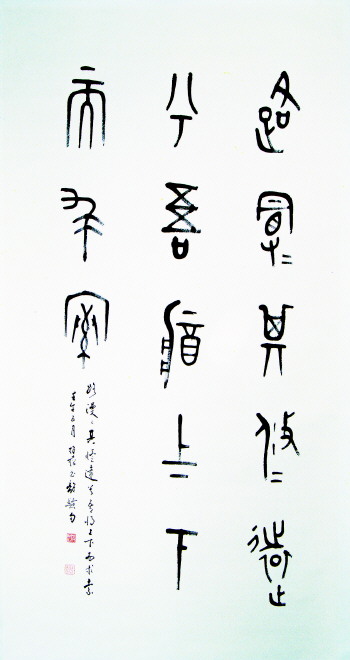 路漫〻其修遠
兮吾將上下
而求索
路漫〻其修遠兮吾將上下而求索
壬午五月